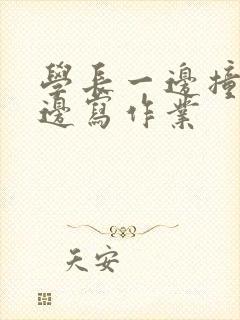 學長一邊撞
邊寫作業
天安